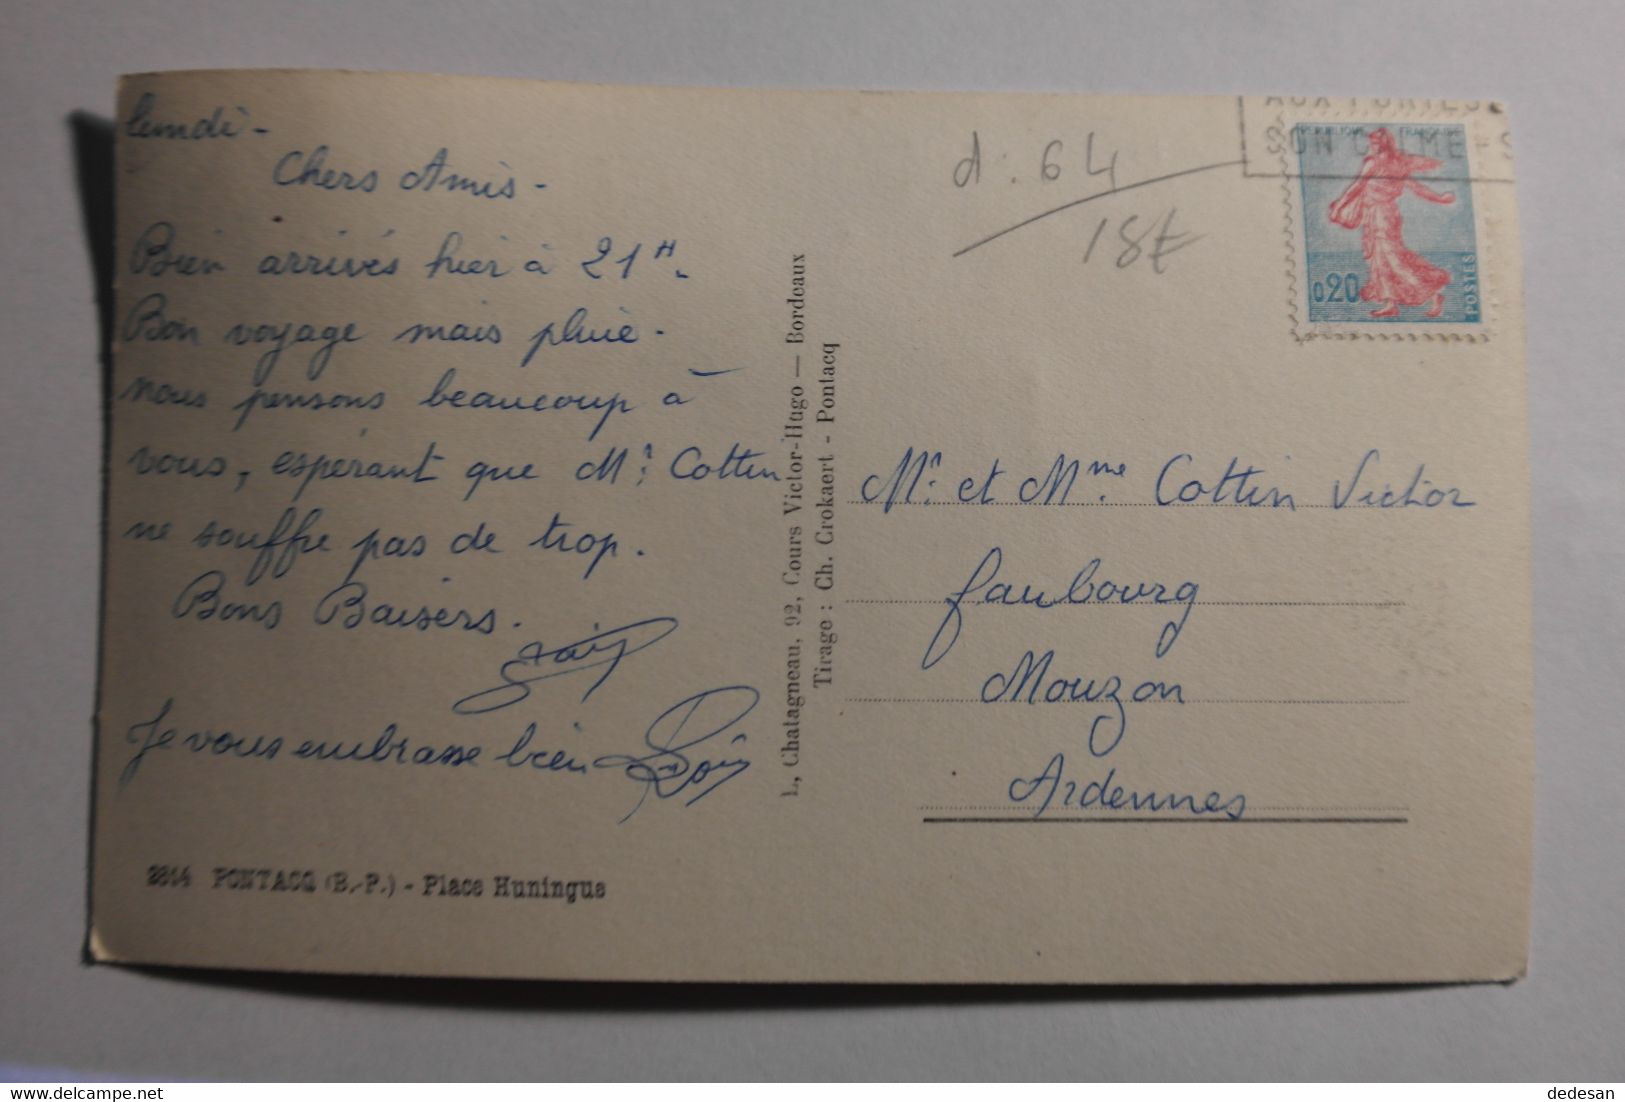 lundi -
Chers Amis -
Bien arrivés hier à 21H.
Bon voyage mais pluie -
nous pensons beaucoup à
vous, espérant que Mr. Cottin
ne souffre pas de trop.
Bons Baisers.
Je vous embrasse bien
2814 PONTACQ (B.-P.) - Place Huningue
L. Chatagneau, 92, Cours Victor-Hugo — Bordeaux
Tirage : Ch. Crokaert - Pontacq
d : 64
18€
SON CALME
REPUBLIQUE FRANÇAISE
0,20
POSTES
Mr. et Mme. Cottin Victor
faubourg
Mouzon
Ardennes
dedesan
delcampe.net